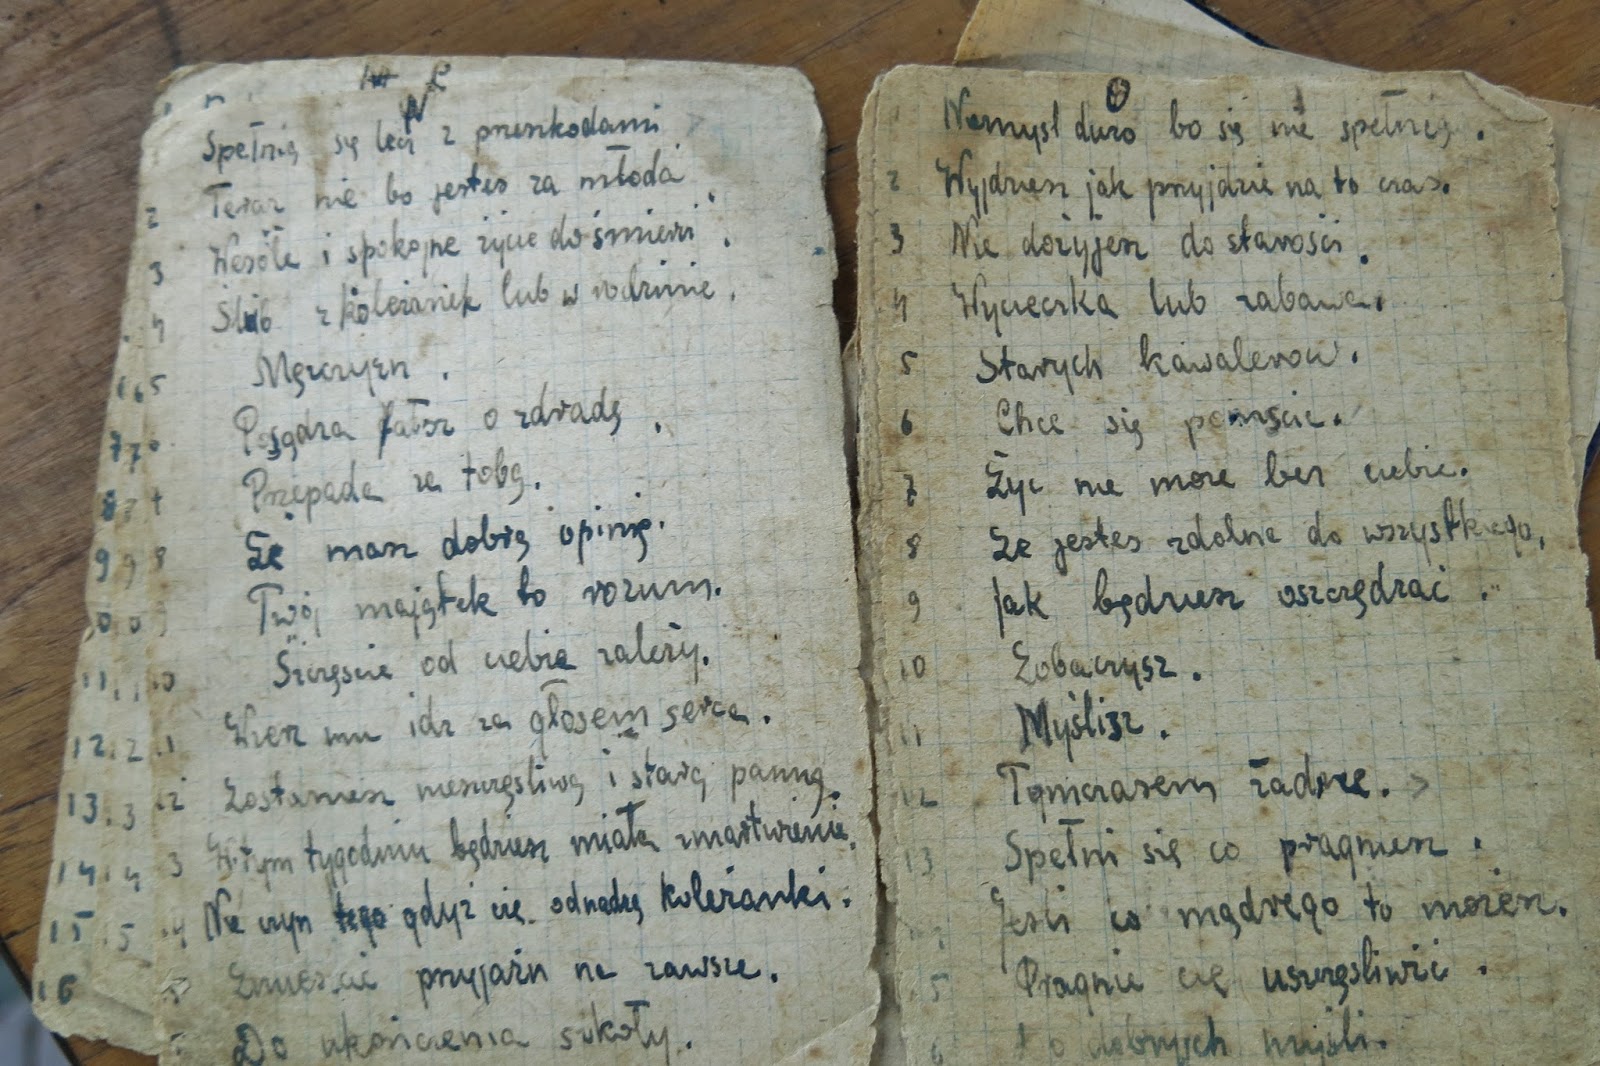 N P
Spełnią się lecz z przeszkodami
Teraz nie bo jesteś za młoda
2
Wesołe i spokojne życie do śmierci.
3
Ślub z koleżanek lub w rodzinie.
4
Mężczyzn.
5
o zdradę
Przepada za tobą.
7
Że masz dobrą opinię.
9 9 8
Twój majątek to rozum.
Szczęście od ciebie zależy.
11.
głosem serca.
12.2
Zostaniesz nieszczęśliwą i starą panną.
13.3
W tym tygodniu będziesz miała zmartwienie.
14.4 3
Nie czyń tego gdyż cię koleżanki.
15.5 4
przyjaźń na zawsze.
16 5
Do ukończenia szkoły.
O
Niemyśl dużo bo się nie spełnią.
2 Wyjdziesz jak przyjdzie na to czas.
3 Nie dożyjesz do starości.
4 Wycieczka lub zabawa.
5 Starych kawalerow.
6 Chce się
7 Żyć nie może bez ciebie.
8 Że jesteś zdolna do wszystkiego,
9 Jak będziesz oszczędzać.
10 Zobaczysz.
11 Myślisz.
12 Tymczasem żadne.
13 Spełni się co pragniesz.
Jeśli co mądrego to możesz.
5 Pragnie cię uszczęśliwić.
6 dobrych myśli.